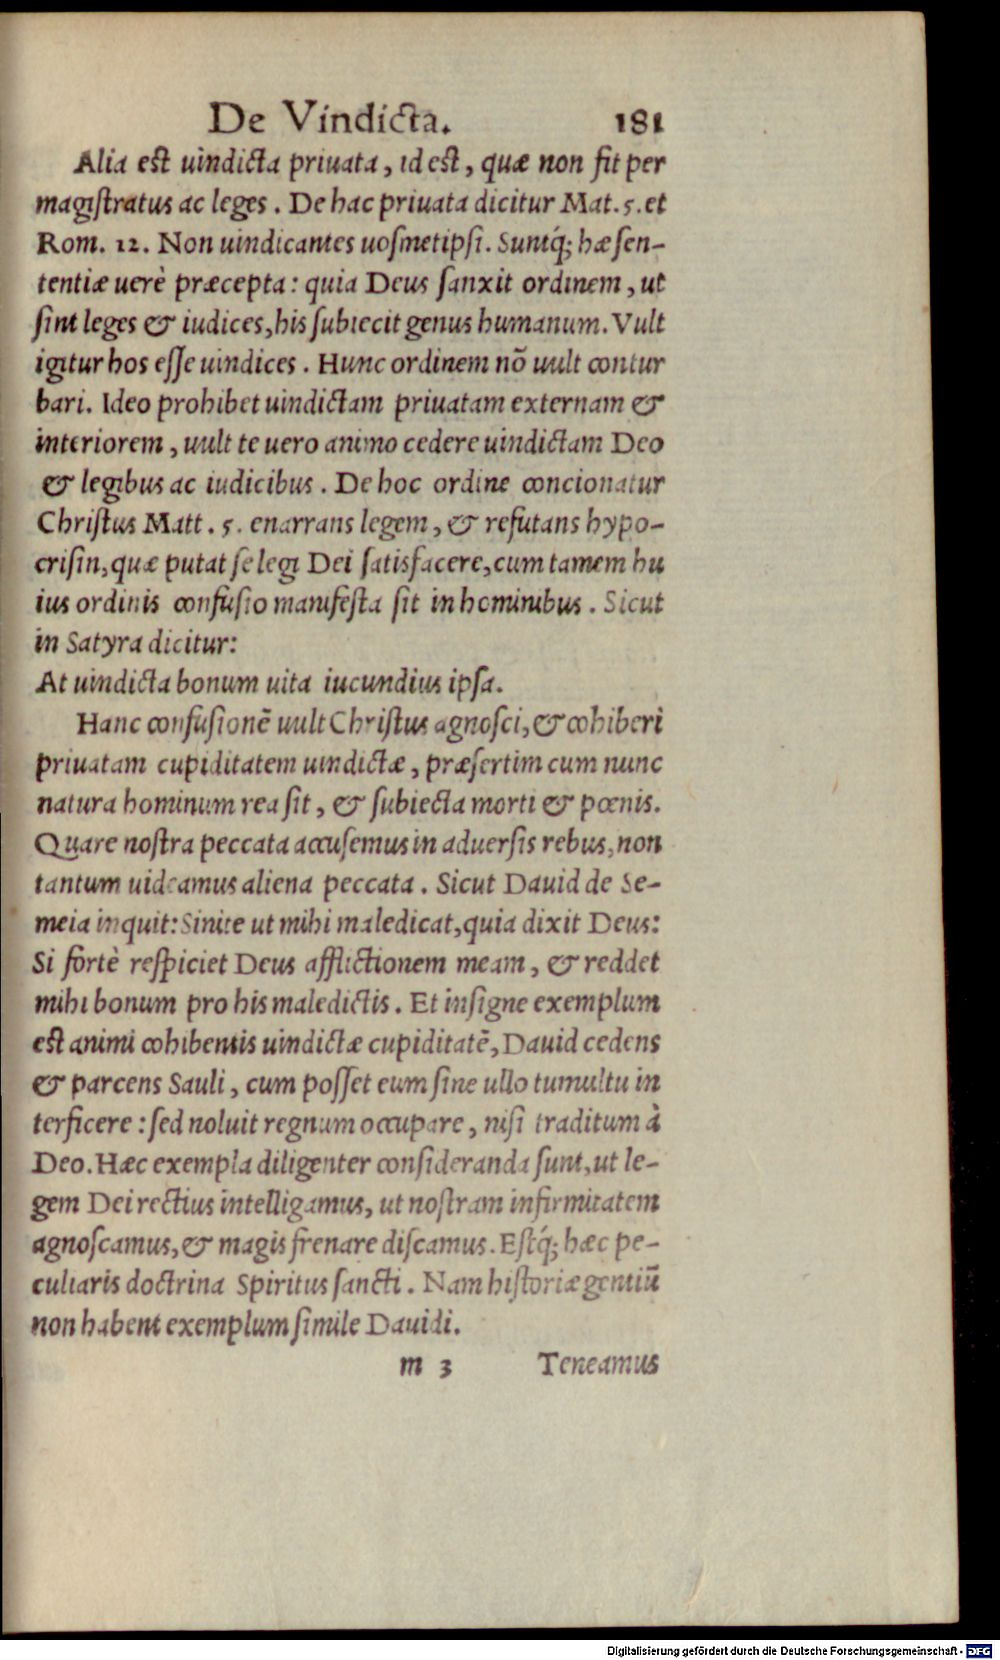 De Vindicta. 181
Alia est uindicta priuata, id est, quæ non fit per
magistratus ac leges. De hac priuata dicitur Mat. 5. et
Rom. 12. Non uindicantes uosmetipsi. Suntq́; hæ sen-
tentiæ uerè præcepta: quia Deus sanxit ordinem, ut
sint leges & iudices, his subiecit genus humanum. Vult
igitur hos esse uindices. Hunc ordinem nõ uult contur
bari. Ideo prohibet uindictam priuatam externam &
interiorem, uult te uero animo cedere uindictam Deo
& legibus ac iudicibus. De hoc ordine concionatur
Christus Matt. 5. enarrans legem, & refutans hypo-
crisin, quæ putat se legi Dei satisfacere, cum tamem hu
ius ordinis confusio manifesta sit in hominibus. Sicut
in Satyra dicitur:
At uindicta bonum uita iucundius ipsa.
Hanc confusionẽ uult Christus agnosci, & cohiberi
priuatam cupiditatem uindictæ, præsertim cum nunc
natura hominum rea sit, & subiecta morti & pœnis.
Quare nostra peccata accusemus in aduersis rebus, non
tantum uideamus aliena peccata. Sicut Dauid de Se-
meia inquit: Sinite ut mihi maledicat, quia dixit Deus:
Si fortè respiciet Deus afflictionem meam, & reddet
mihi bonum pro his maledictis. Et insigne exemplum
est animi cohibentis uindictæ cupiditatẽ, Dauid cedens
& parcens Sauli, cum posset eum sine ullo tumultu in
terficere: sed noluit regnum occupare, nisi traditum à
Deo. Hæc exempla diligenter consideranda sunt, ut le-
gem Dei rectius intelligamus, ut nostram infirmitatem
agnoscamus, & magis frenare discamus. Estq́; hæc pe-
culiaris doctrina Spiritus sancti. Nam historiæ gentiũ
non habent exemplum simile Dauidi.
m 3 Teneamus
Digitalisierung gefördert durch die Deutsche Forschungsgemeinschaft - DFG